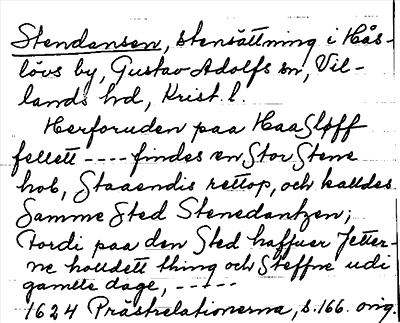 Stendansen, stensättning i Hås-
lövs by, Gustav Adolfs sn, Vil-
lands hd, Krist. l.
Herforuden paa HaaSløff
fellett ---- findes en Stor Stene
hob, Staaendis rettop, och kalldes
Samme Sted Stenedantzen;
Fordi paa den Sted haffuer Jetter-
ne holldett thing och Steffne udi
gamlle dage, -----
1624 Prästrelationerna, s. 166. orig.